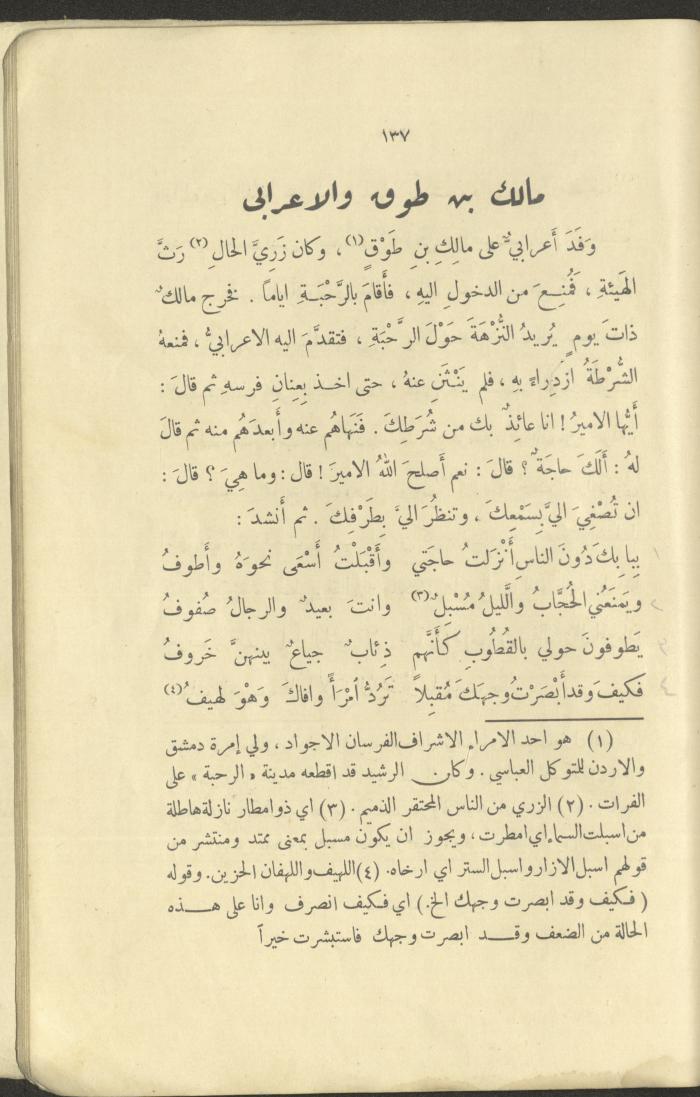 ١٣٧
مالك بن طوق والاعرابي
وَفَدَ أَعرابيٌّ على مالِكِ بنِ طَوْقٍ(١) ، وكان زَرِيَّ الحالِ(٢) رَثَّ
الهَيئةِ ، فَمُنِعَ من الدخولِ اليهِ ، فأَقامَ بالرَّحْبَةِ اياماً . فخرج مالكٌ
ذاتَ يومٍ يُريدُ النُّزْهَةَ حَوْلَ الرَّحْبَةِ ، فتقدَّمَ اليه الاعرابيُّ ، فمنعهُ
الشُّرْطَةُ ازْدِراءً بهِ ، فلم يَنْثَنِ عنهُ ، حتى اخذ بِعِنانِ فرسهِ ثم قالَ :
أَيُّها الاميرُ ! انا عائِذٌ بك من شُرَطِكَ . فَنَهاهُم عنه وأَبعدَهُم منه ثم قالَ
لهُ : أَلَكَ حاجَةٌ ؟ قالَ : نعم أَصلحَ اللهُ الاميرَ ! قال : وما هِيَ ؟ قالَ :
ان تُصْغِيَ اليَّ بِسَمْعِكَ ، وتنظُرَ اليَّ بِطَرْفِكَ . ثم أَنشدَ :
بِبابِكَ دُونَ الناسِ أَنْزَلتُ حاجَتي وأَقْبَلْتُ أَسْعَى نحوَهُ وأَطوفُ
ويَمنَعُني الحُجَّابُ والَّليلُ مُسْبِلٌ(٣) وانتَ بعيدٌ والرجالُ صُفوفُ
يَطوفونَ حولي بالقُطُوبِ كأَنَّهم ذِئابٌ جياعٌ بينهنَّ خَروفُ
فكيفَ وقد أَبْصَرْتُ وجهَكَ مُقبِلاً تَرُدُّ ٱمْرَأً وافاكَ وَهْوَ لهيفُ(٤)
(١) هو احد الامراء الاشراف الفرسان الاجواد ، ولي إمرة دمشق
والاردن للمتوكل العباسي . وكان الرشيد قد اقطعه مدينة « الرحبة » على
الفرات . (٢) الزري من الناس المحتقر الذميم . (٣) اي ذو امطار نازلة هاطلة
من اسبلت السماء اي امطرت ، ويجوز ان يكون مسبل بمعنى ممتد ومنتشر من
قولهم اسبل الازار واسبل الستر اي ارخاه . (٤) اللهيف واللهفان الحزين . وقوله
( فكيف وقد ابصرت وجهك الخ.) اي فكيف انصرف وانا على هذه
الحالة من الضعف وقد ابصرت وجهك فاستبشرت خيراً